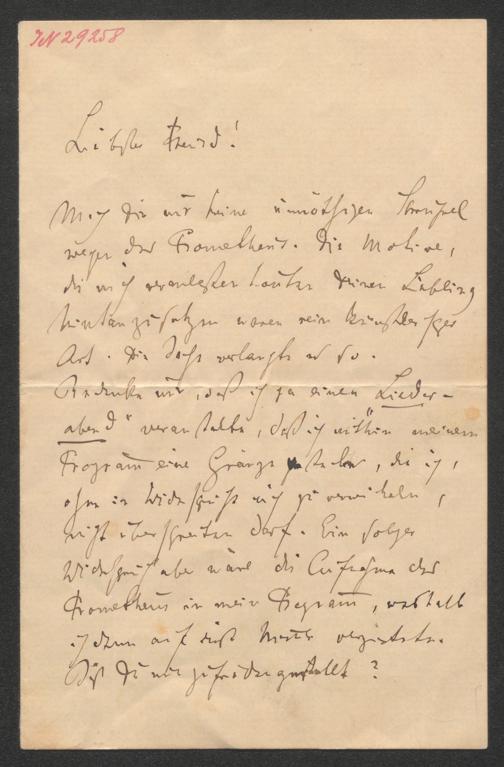 IN 29258
Liebster Freund!
Mach dir nur keine unnöthigen Skrupel
wegen des Prometheus. Die Motive,
die mich veranlaßten deinen Liebling
hintanzusetzen waren rein künstlerischer
Art. Die Sache verlangte es so.
Bedenke nur, daß ich ja einen „Lieder-
abend" veranstalte, daß ich mithin meinem
Program eine Gränze stelle, die ich,
ohne in Widerspruch mich zu verwickeln,
nicht überschreiten darf. Ein solcher
Widerspruch aber wäre die Aufnahme des
Prometheus in mein Program, weshalb
ich denn auf dieß verzichtete.
Bist du nun zufriedengestellt?